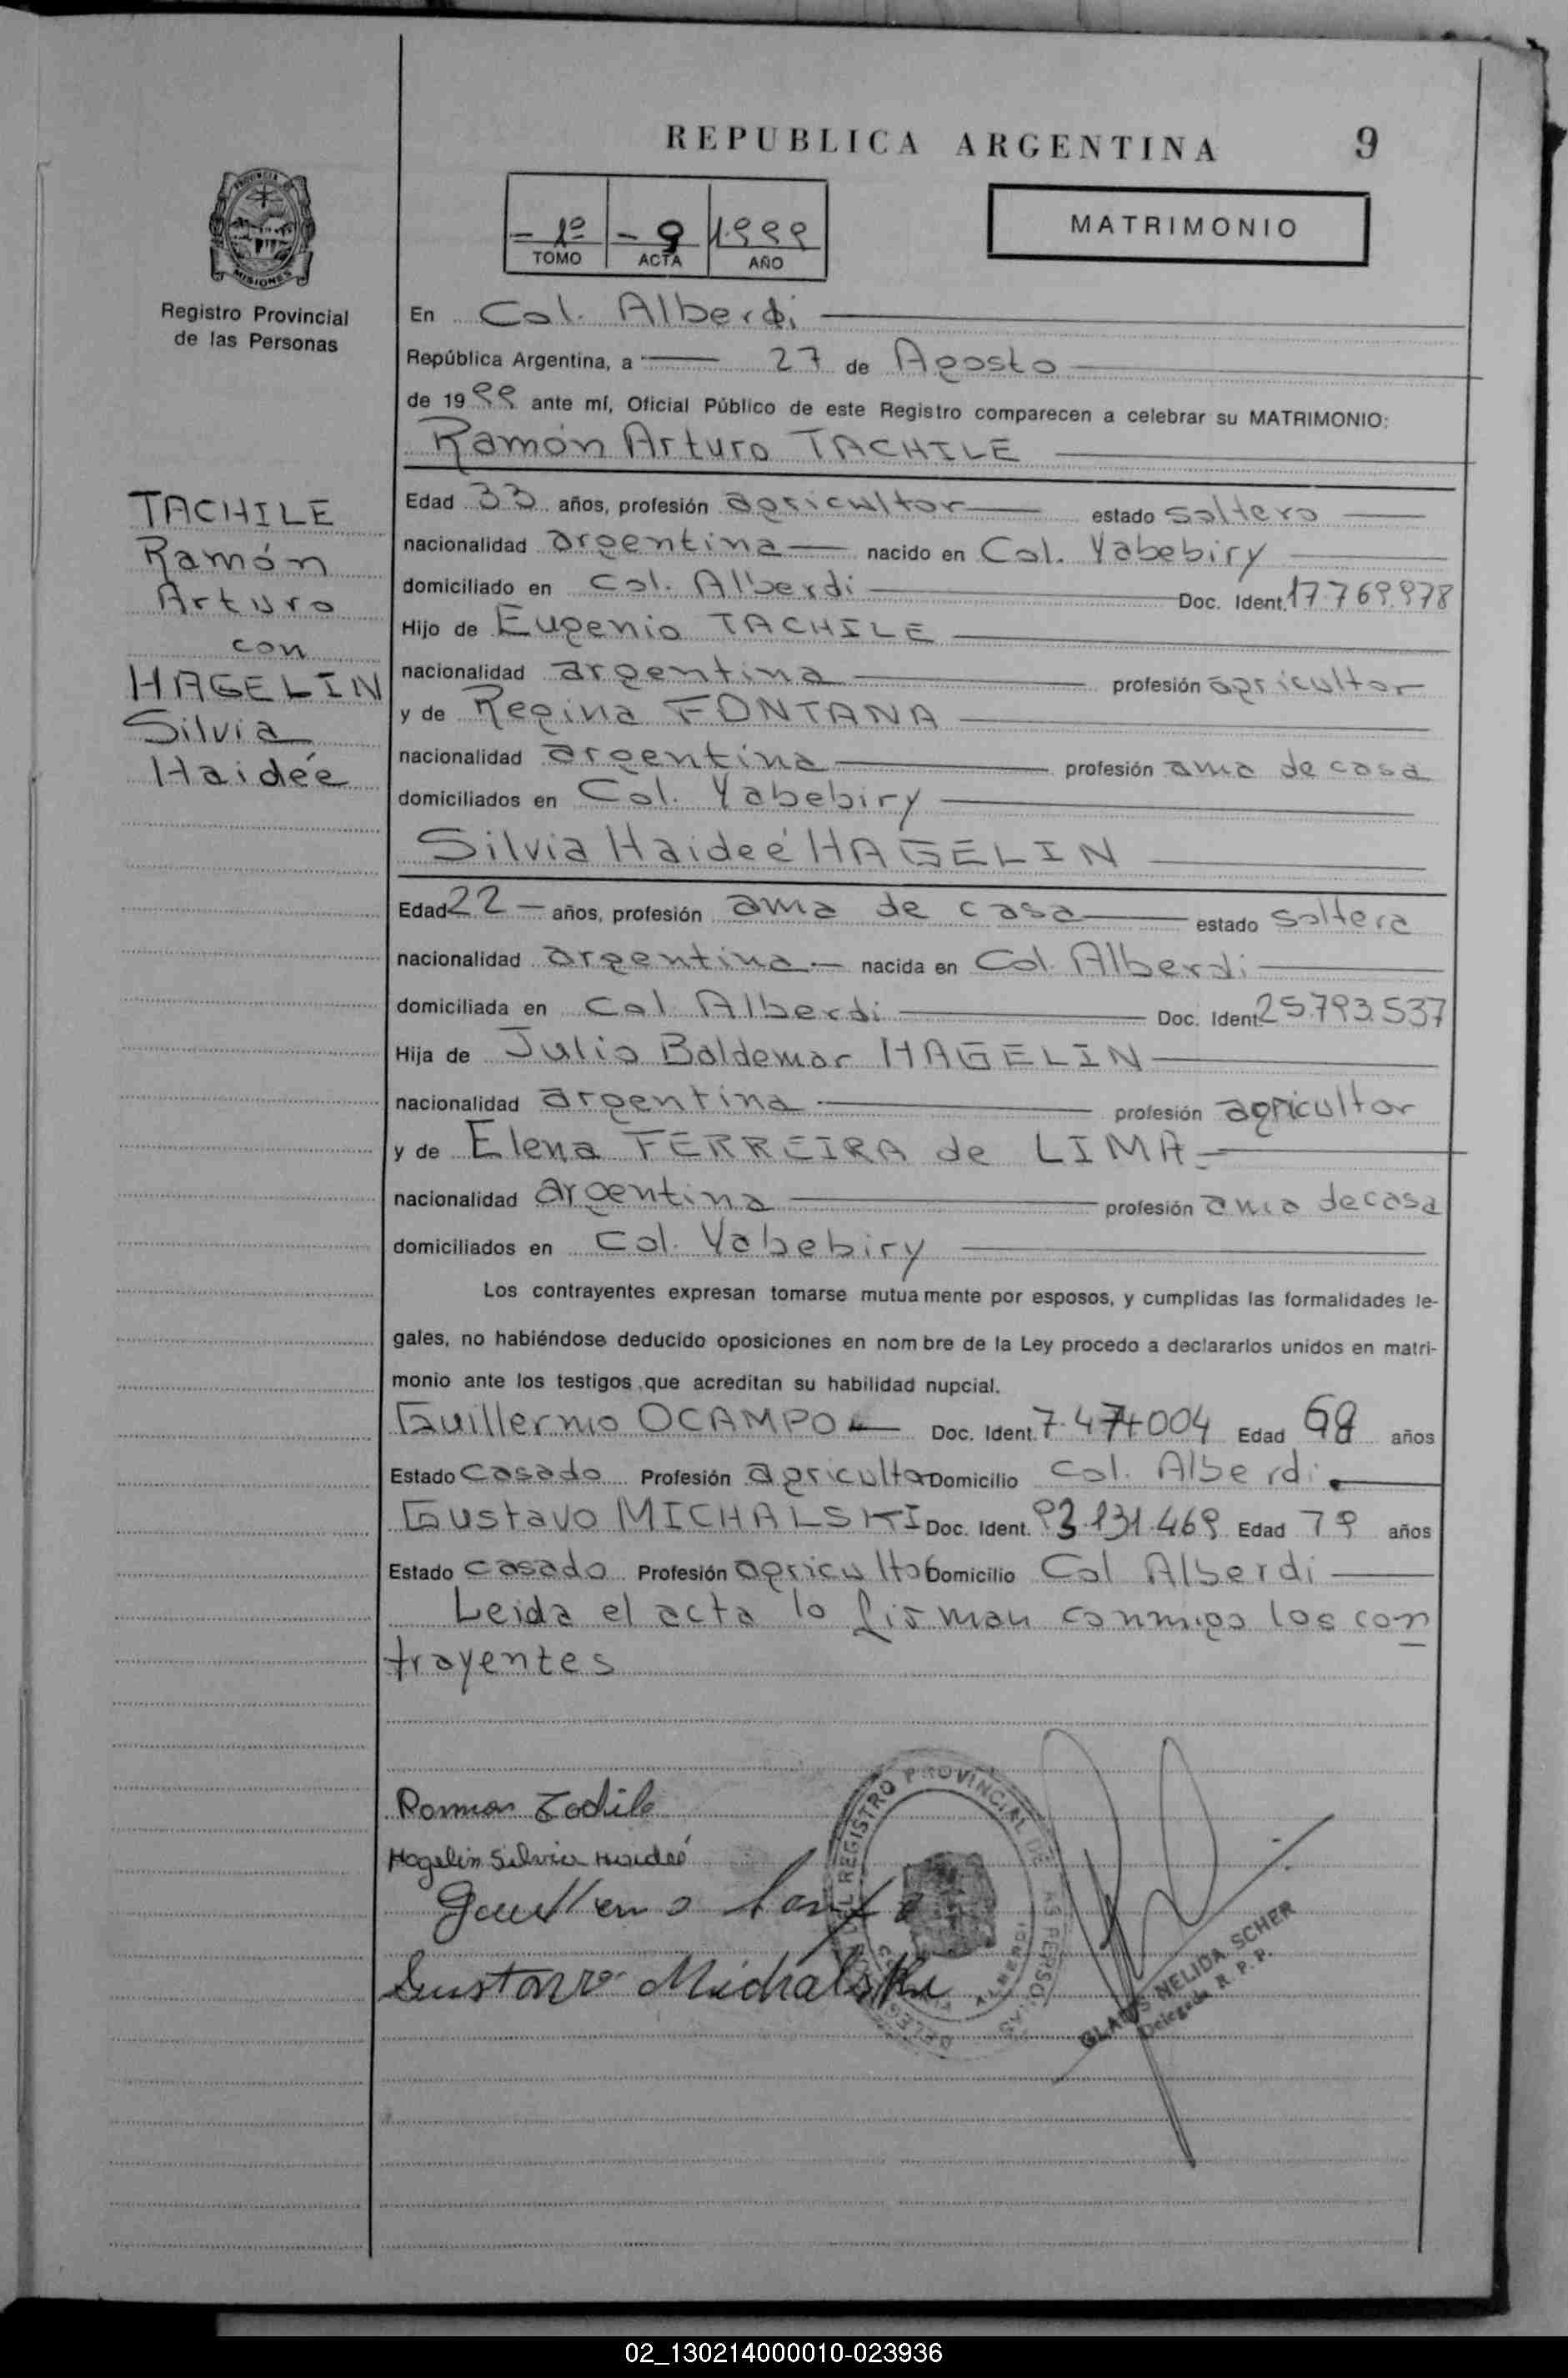 REPUBLICA ARGENTINA 9
PROVINCIA DE
MISIONES
Registro Provincial
de las Personas
- 1º - 9 1.999
TOMO ACTA AÑO
MATRIMONIO
En Col. Alberdi
República Argentina, a 27 de Agosto
de 1999 ante mí, Oficial Público de este Registro comparecen a celebrar su MATRIMONIO:
Ramón Arturo TACHILE
TACHILE
Ramón
Arturo
con
HAGELIN
Silvia
Haidée
Edad 33 años, profesión agricultor estado soltero
nacionalidad argentina nacido en Col. Yabebiry
domiciliado en Col. Alberdi Doc. Ident. 17.769.978
Hijo de Eugenio TACHILE
nacionalidad argentina profesión agricultor
y de Regina FONTANA
nacionalidad argentina profesión ama de casa
domiciliados en Col. Yabebiry
Silvia Haideé HAGELIN
Edad 22 - años, profesión ama de casa estado soltera
nacionalidad argentina nacida en Col. Alberdi
domiciliada en Col. Alberdi Doc. Ident. 25.793.537
Hija de Julio Baldemar HAGELIN
nacionalidad argentina profesión agricultor
y de Elena FERREIRA de LIMA.
nacionalidad argentina profesión ama de casa
domiciliados en Col. Yabebiry
Los contrayentes expresan tomarse mutuamente por esposos, y cumplidas las formalidades le-
gales, no habiéndose deducido oposiciones en nombre de la Ley procedo a declararlos unidos en matri-
monio ante los testigos que acreditan su habilidad nupcial.
Guillermo OCAMPO Doc. Ident. 7.474004 Edad 68 años
Estado casado Profesión agricultor Domicilio Col. Alberdi.
Gustavo MICHALSKI Doc. Ident. 93.131.469 Edad 79 años
Estado casado Profesión agricultor Domicilio Col Alberdi
Leida el acta lo firman conmigo los con
trayentes
Ramon Tachile
Hagelin Silvia Haideé
Gustavo Michalski
REGISTRO PROVINCIAL DE LAS PERSONAS
ALBERDI
GLADIS NELIDA SCHER
Delegada R. P. P.
02_130214000010-023936